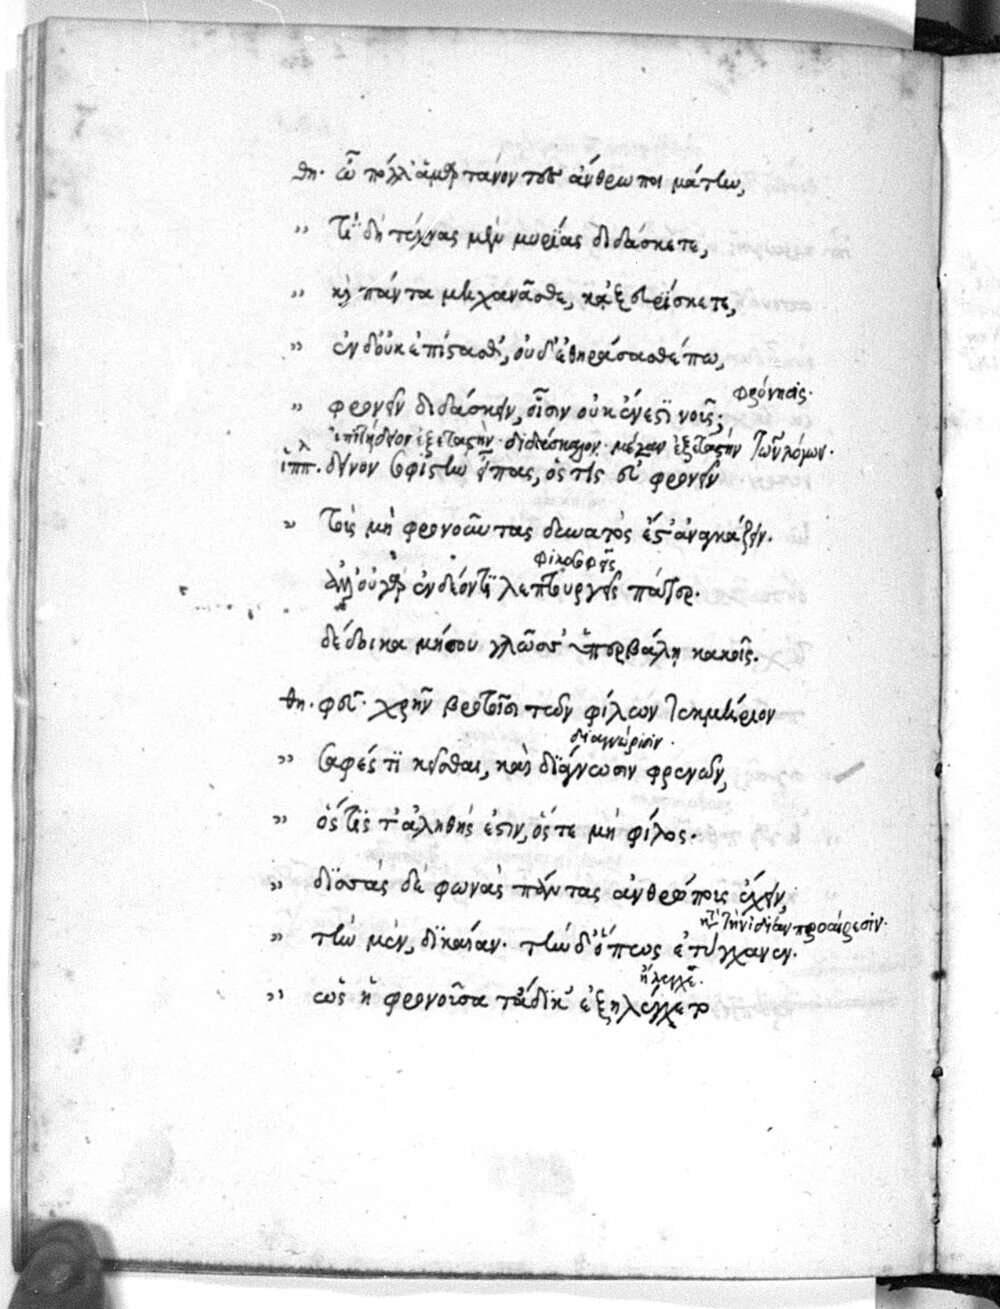 θη. ὦ πόλλ' ἁμαρτάνοντες ἄνθρωποι μάτην,
" τί δὴ τέχνας μὲν μυρίας διδάσκετε,
" καὶ πάντα μηχανᾶσθε, κἀξευρίσκετε,
" ἓν δ' οὐκ ἐπίστασθ', οὐδ' ἐθηράσασθέ πω,
φρόνησις.
" φρονεῖν διδάσκειν, οἷσιν οὐκ ἔνεστι νοῦς;
ἐπιτήδειον ἐξεταστὴν. διδάσκαλον. μέγαν ἐξεταστὴν τῶν λόγων.
ἱππ. δεινὸν σοφιστὴν εἶπας, ὅς τις εὖ φρονεῖν
" τοὺς μὴ φρονοῦντας δυνατός ἐστ' ἀναγκάζειν.
φιλοσοφεῖς
ἀλλ' οὐ γὰρ ἐν δέοντι λεπτουργεῖς πάτερ.
δέδοικα μή σου γλῶσσ' ὑπερβάλῃ κακοῖς.
θη. φεῦ. χρῆν βροτοῖσι τῶν φίλων τεκμήριον
διαγνώρισιν.
" σαφές τι κεῖσθαι, καὶ διάγνωσιν φρενῶν,
" ὅς τις τ' ἀληθής ἐστιν, ὅς τε μὴ φίλος.
" δισσάς δὲ φωνὰς πάντας ἀνθρώπους ἔχειν,
κατὰ τὴν ἰδίαν προαίρεσιν.
" τὴν μὲν, δικαίαν. τὴν δ' ὅπως ἐτύγχανεν.
ἠλέγχε.
" ὡς ἡ φρονοῦσα τἄδικ' ἐξηλέγχετο